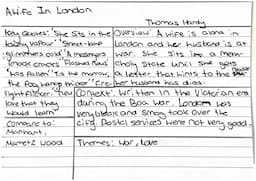 A Wife In London
Thomas Hardy
Key Quotes: 'She Sits in the
tawny vapour' 'Street-lamp
glimmers cold' 'A messengers
knock cracks' 'Flashed news'
'Has fallen' 'Tis the morrow,
the fog hangs thicker' 'Fire-
light flicker' 'They
love that they
would learn'
Compare to:
Manhunt,
Mametz Wood
Overview: A wife is alone in
London and her husband is at
war. She sits in a
state until she gets
a letter that hints to the
her husband has died.
Context: Written in the Victorian era
during the Boa War. London was
very bleak and smog took over the
city. Postal services were not very good.
Themes: War, Love